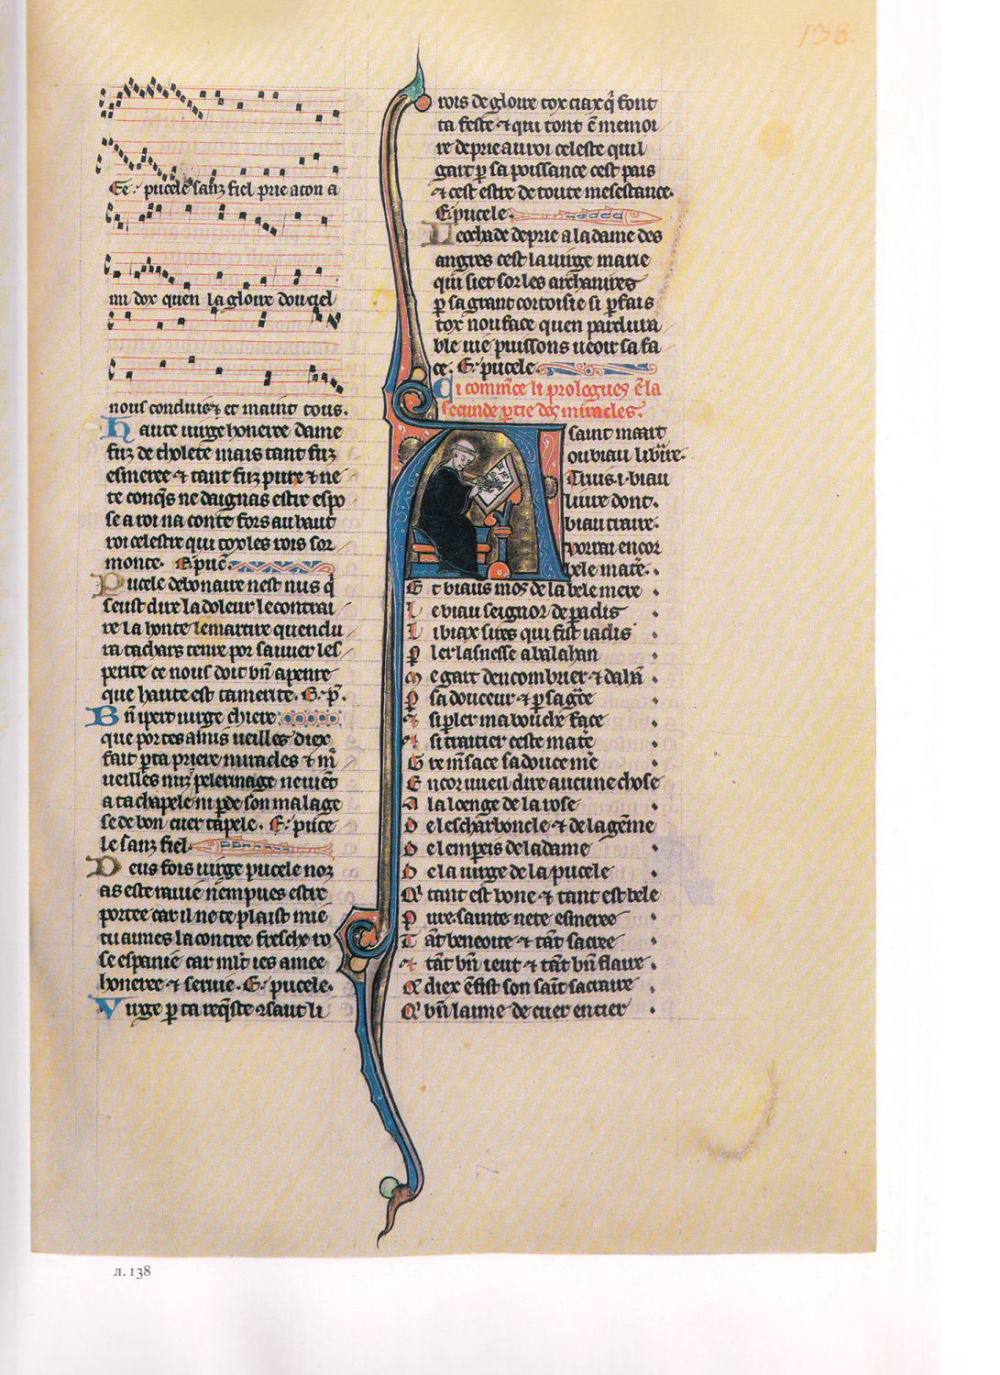 138.
E e. pucele sanz fiel prie a ton a
mi dox quen la gloire dou ciel
nous conduie ⁊ et maint tous.
H aute uirge honeree dame
fuz de tholete mais tant fuz
esmeree ⁊ tant fuz pure ⁊ ne
te conq̃s ne daignas estre espo
se a roi na conte fors au haut
roi celestre qui toz les rois sor
monte. E puc̃
P ucele debonaire nest nus q̃
seust dire la doleur le contrai
re la honte le martire quendu
ra ta chars tenre por sauuer les
petite ce nous doit bñ aperre
que haute est ta merite. E. p̃.
B ñ ipert uirge chiere
que por tes amis ueilles diex
fait p̱ ta priere miracles ⁊ m̃
ueilles nus pelerinage ne uiẽt
a ta chapele ni p̱de son malage
se de bon cuer tapele. E. puce
le sanz fiel.
D eus fois uirge pucele noz
as este
portee car il ne te plaist mie
tu aimes la contree fresche ro
se espanie car ml̃t ies amee
honeree ⁊ seruie. E. pucele.
V irge p̱ ta req̃ste
rois de gloire toz ciax q̃ font
ta feste ⁊ qui tont ẽ memoi
re deprie au roi celeste quil
gart p̱ sa poissance cest pais
⁊ cest estre de toute mesestance.
E pucele.
L eochade deprie a la dame des
angres cest la uirge marie
qui siet sor les archanires
p̱ sa grant cortoisie si p̱fais
toz nou face quen pardura
ble uie puissons ueoir sa fa
ce. E. pucele
Ci commẽce li prologues ẽ la
secunde p̱tie des miracles.
A saint maart
ou biau librire.
Truis .i. biau
liure dont.
biau traire.
Vorrai encor
bele mat̃e.
E t biaus moz de la bele mere
L e biau seignor de p̱adis
L i biax sires qui fist iadis
P ler lasnesse a balahan
M e gart dencombrier ⁊ dahñ
P sa douceur ⁊ p̱ sa g̃ce
⁊ si p̱ler ma bouche face
⁊ si traitier ceste mat̃e
G re mẽ sace sa douce me
E ncor uueil dire aucune chose
A la loenge de la rose
D e lescharboncle ⁊ de la gẽme
D e lemperis de la dame
D e la uirge de la pucele
Q̃ tant est bone ⁊ tant est bele
P ure sainte nete esmeree
T ãt beneoite ⁊ tãt sacree
⁊ tãt bñ ieut ⁊ tãt bñ flaire
Q̃ diex ẽ fist son sãit sacraire
Q̃ bñ laime de cuer entier
л. 138